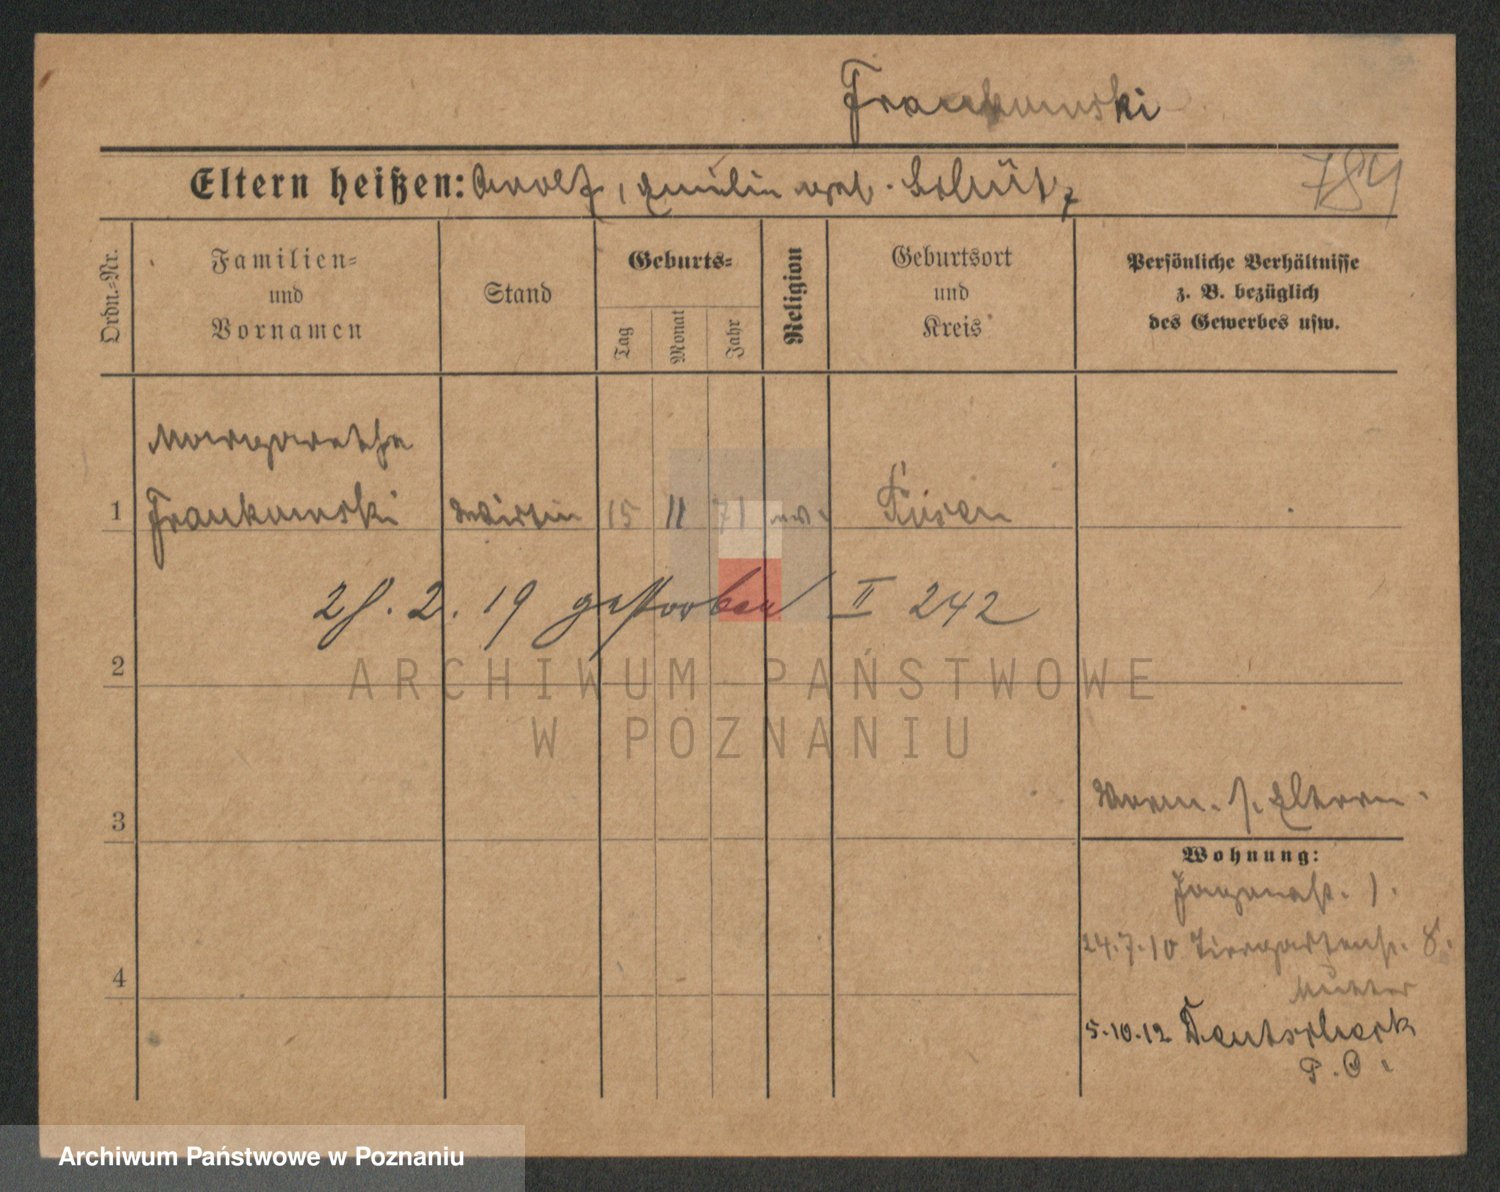 Frankowski
Eltern heißen: Adolf, Emilie geb. Schütz
784
Ordn.-Nr.
Familien-
und
Vornamen
Stand
Geburts-
Tag
Monat
Jahr
Religion
Geburtsort
und
Kreis
Persönliche Verhältnisse
z. B. bezüglich
des Gewerbes usw.
Margarethe
1 Frankowski 15 11 71 ev.
28. 2. 19 gestorben II 242
2
ARCHIWUM PAŃSTWOWE
W POZNANIU
Eltern.
3
Wohnung:
1.
24.7.10 Tiergartenstr. 8.
Mutter
4
5.10.12
Archiwum Państwowe w Poznaniu